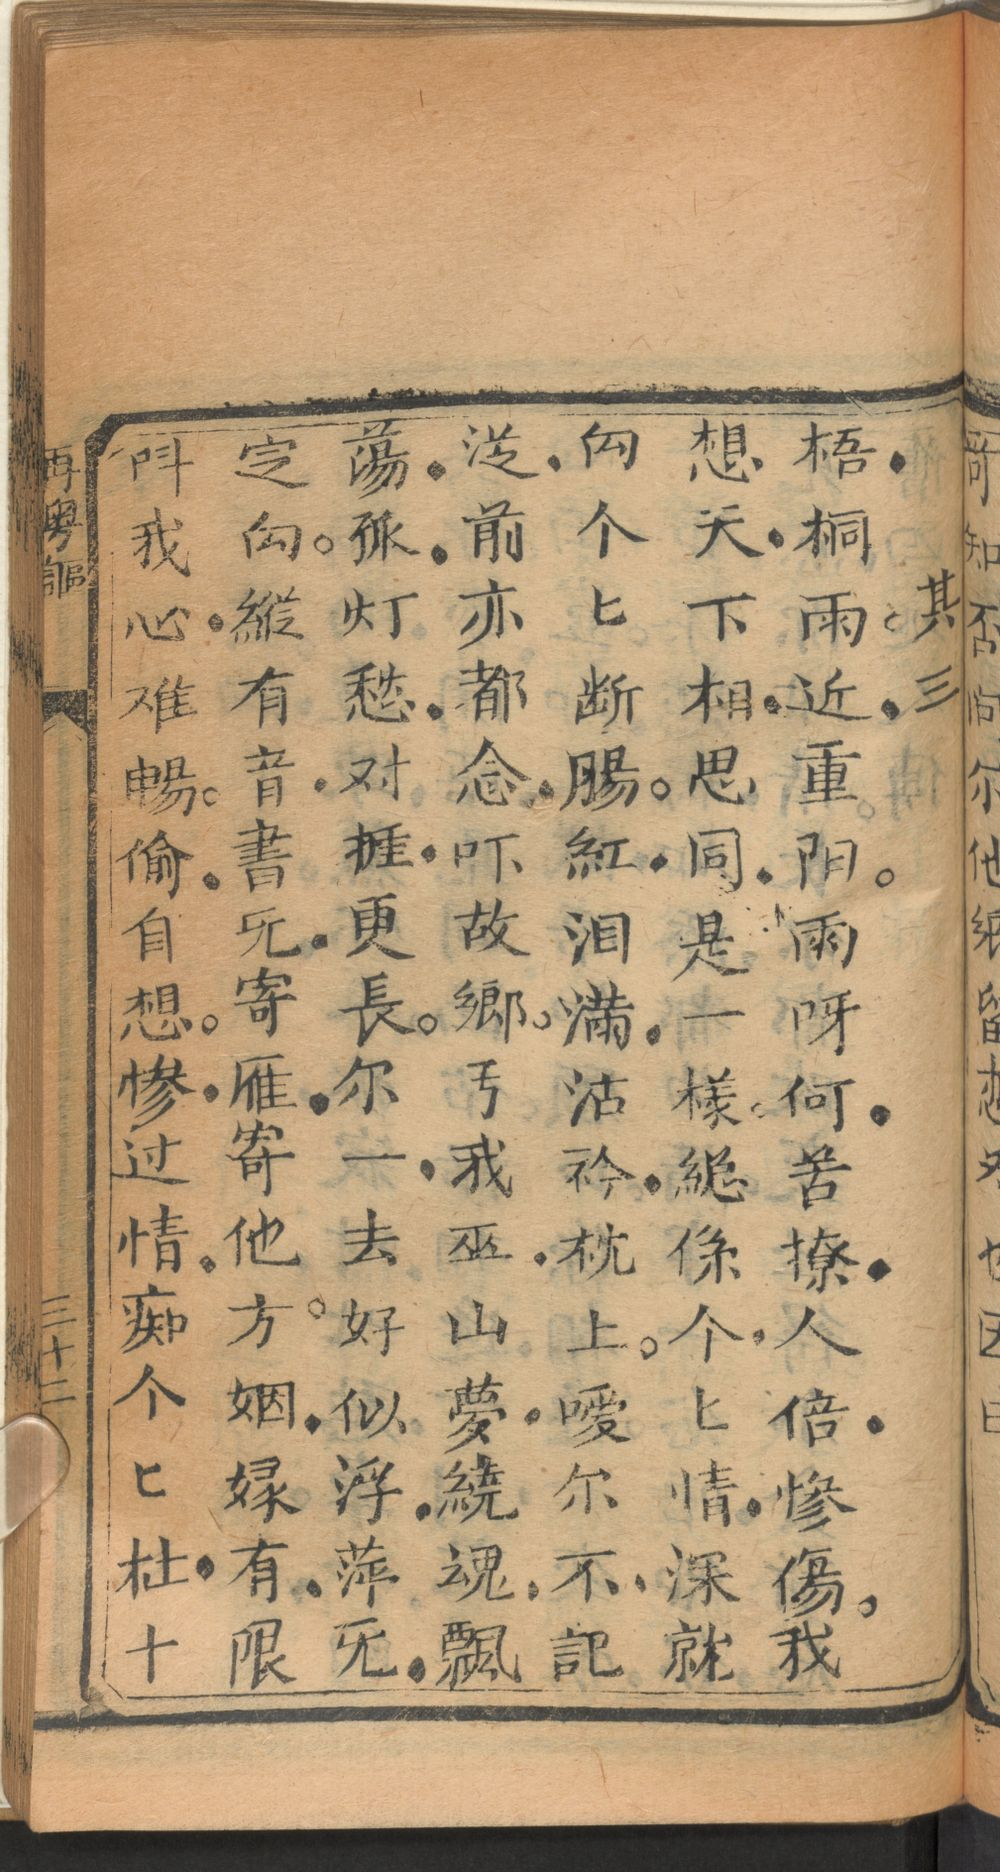 其三
梧桐雨。近重阳。雨呀何苦撩人倍惨傷。我
想天下相思同是一樣。縂係个匕情深就
向个匕断腸。紅泪滿沾衿枕上。噯尔不記
従前亦都念吓故鄉。亏我巫山夢繞魂飄
蕩孤灯愁对捱更長。尔一去好似浮萍无
定向。縱有音書无寄雁寄他方。姻縁有限
閗我心难暢。偷自想。惨过情痴个匕杜十
再粤謳
三十二